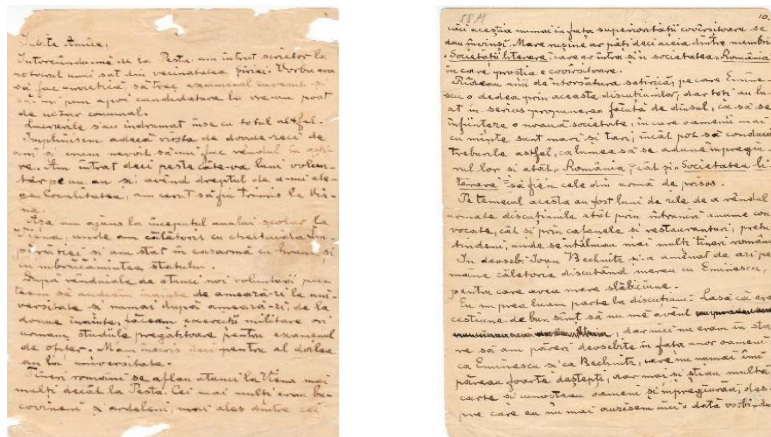 Iubite Amice,
Întorcându-mă de la Pesta, am intrat scriitor la
notarul unui sat din vecinătatea Șiriei. Vorba era
să fac practică, să trec examenul
să-mi pun apoi candidatura la vre-un post
de notar comunal.
Lucrurile s'au îndrumat însă cu totul altfel.
Împlinisem adecă vîrsta de două-zeci de
ani și eram nevoit să-mi fac rândul în
Am intrat deci peste câte-va luni volun-
tar pe un an și, având dreptul de a-mi ale-
ge localitatea, am cerut să fiu trimis la Vie-
na.
Așa am ajuns la începutul anului școlar la
Viena, unde am călătorit cu cheltuiala
și am stat în casarmă cu hrana și
cu îmbrăcămintea statului.
După rânduiala de atunci noi voluntarii pu-
team să audiem înainte de ameazi la uni-
versitate și numai după ameazi, de la
două înainte, făceam exerciții militare și
urmam studiile pregătitoare pentru examenul
de ofițer. M'am înscris deci pentru al doilea
an la universitate.
Tineri români se aflau atunci la Viena mai
mulți decât la Pesta. Cei mai mulți erau bu-
covineni și ardeleni, mai ales dintre cei
10.
căci aceștia numai în fața superiorității covîrșitoare se
dau învinși. Mare rușine ar păți deci aceia dintre membrii
„Societății literare", care ar intra și în societatea „România"
în care prostia e covîrșitoare.
Rîdeau unii de întorsătura satirică, pe care Emine-
scu o dedea prin aceasta discuțiunilor, dar toți au lu-
at în serios propunerea făcută de dînsul, ca să se
înființeze o nouă societate, în care oamenii mai
cu minte sunt mari și tari, încât pot să conducă
treburile astfel, ca lumea să se adune împregiu-
rul lor și atât „România", cât și „Societatea li-
terară" să fie cele din urmă de prisos.
Pe temeiul acesta au fost luni de zile de a rândul
urmate discuțiunile atât prin întruniri anume con-
vocate, cât și prin cafenele și restauranturi, pretu-
tindeni, unde se întâlneau mai mulți tineri români.
În deosebi Ioan Bechnitz și-a amânat de azi pe
mâine călătoria discutând mereu cu Eminescu,
pentru care avea mare slăbiciune.
Eu nu prea luam parte la discuțiuni. Lasă că era
cestiune de bun simț să nu mă avânt
dar nici nu eram în sta-
re să am păreri deosebite în fața unor oameni
ca Eminescu și ca Bechnitz, care nu numai îmi
păreau foarte deștepți, dar mai și știau multă
carte și cunoșteau oameni și împregiurări, des-
pre care eu nu mai auzisem nici o dată vorbindu